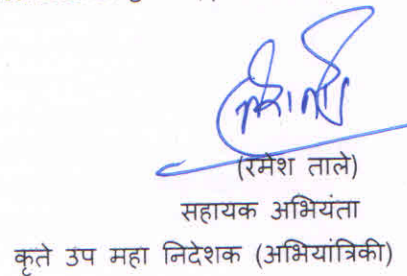 (रमेश ताले)
सहायक अभियंता
कृते उप महा निदेशक (अभियांत्रिकी)